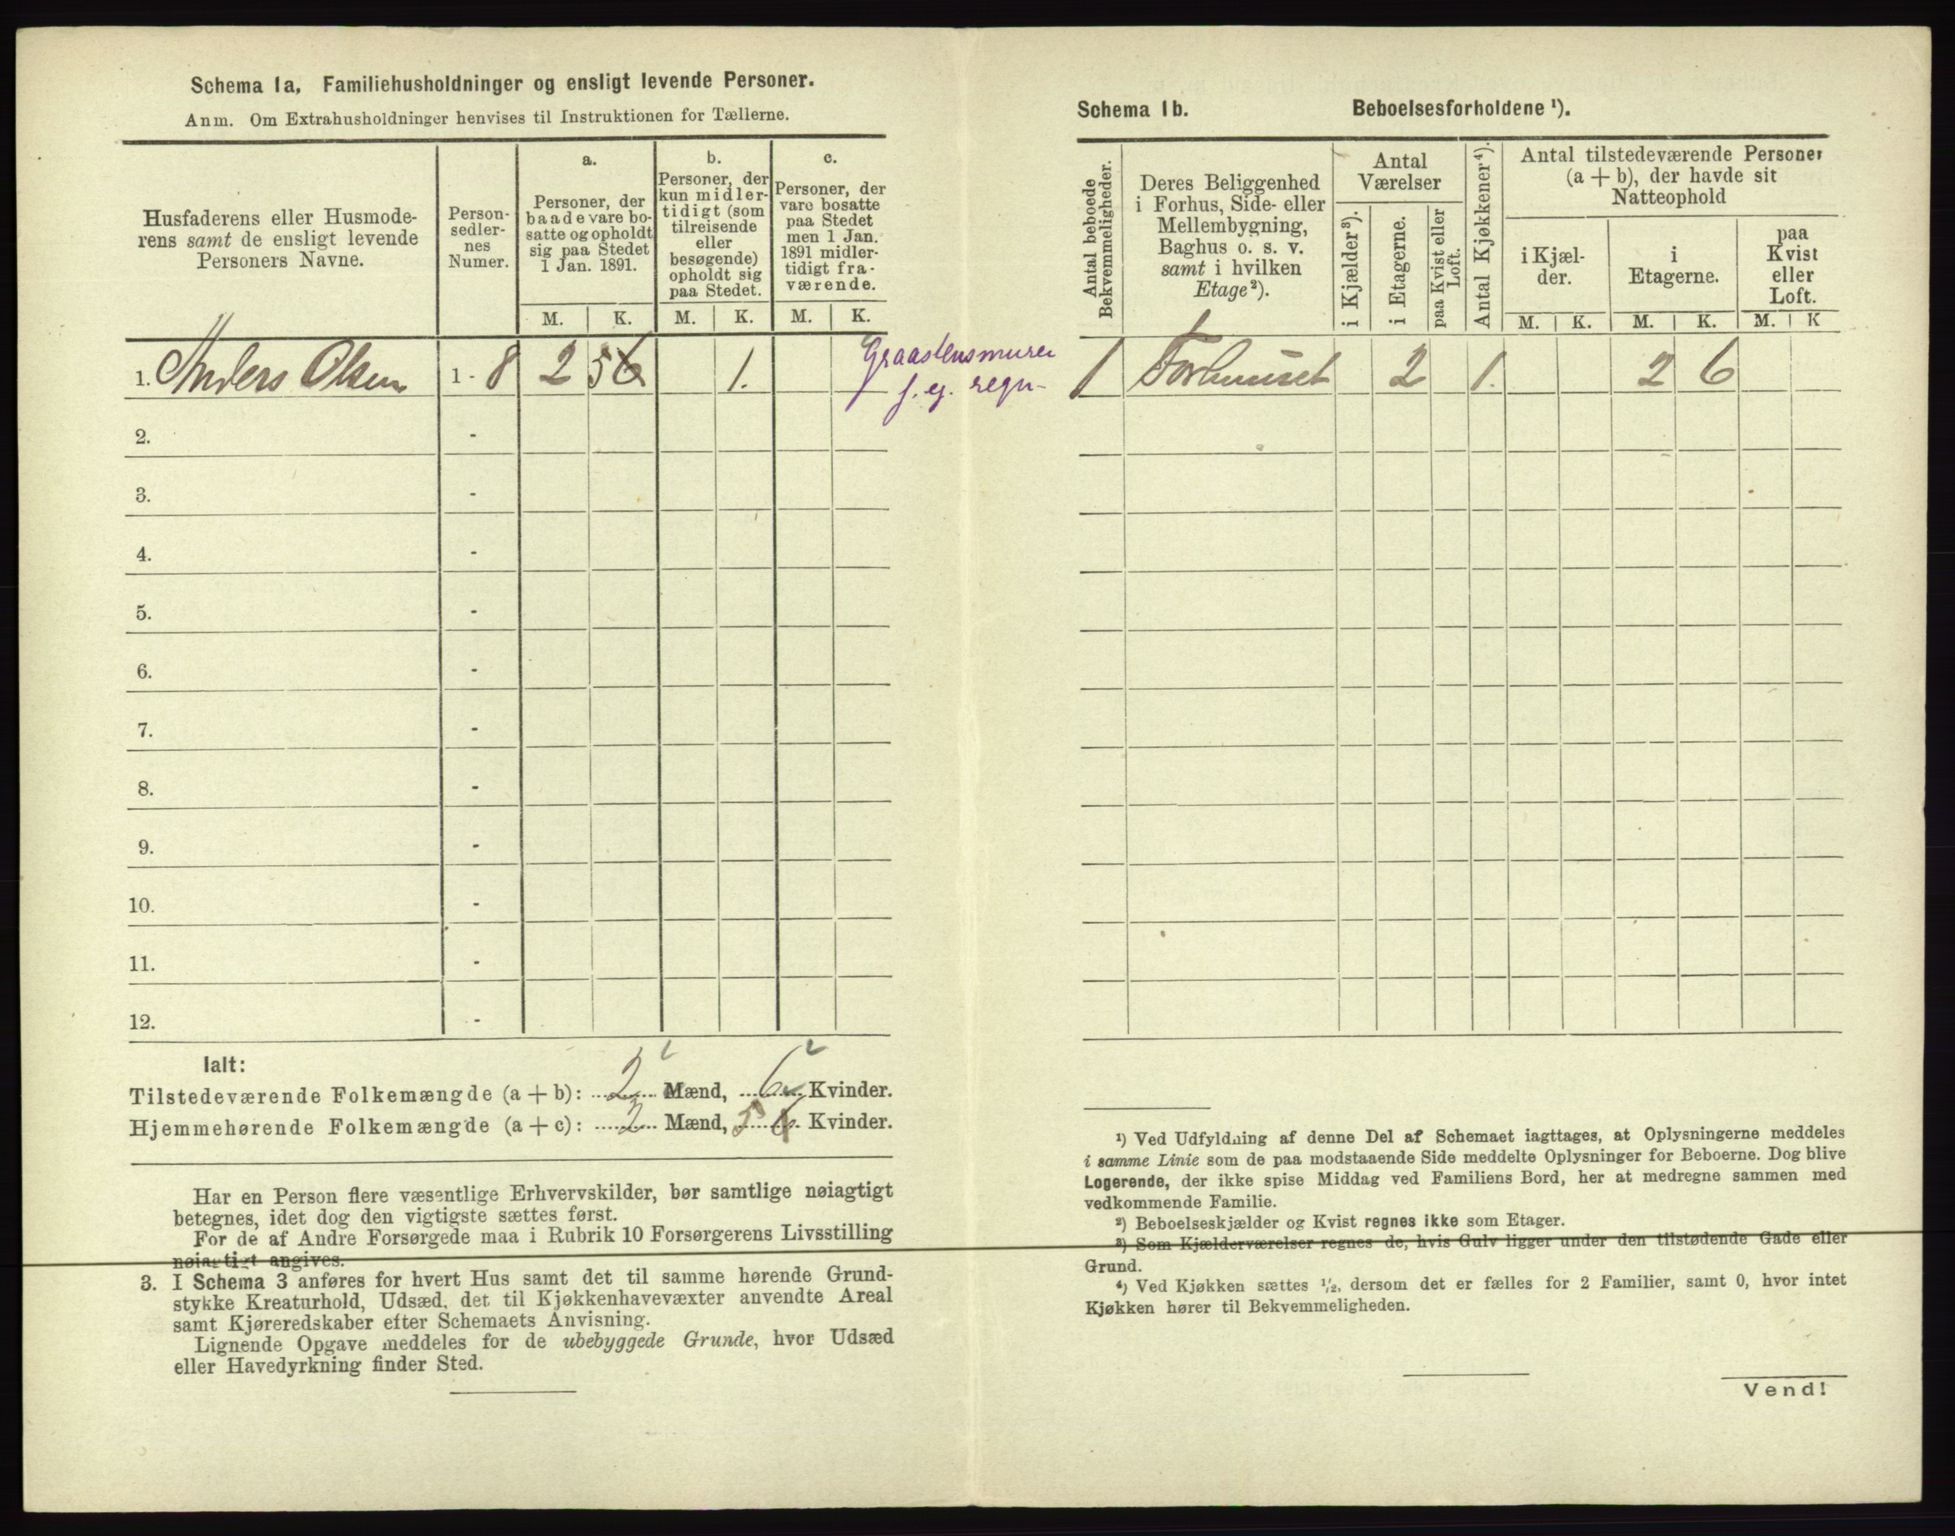 Schema 1a. Familiehusholdninger og ensligt levende Personer.
Anm. Om Extrahusholdninger henvises til Instruktionen for Tællerne.
Husfaderens eller Husmode-
rens samt de ensligt levende
Personers Navne.
Person-
sedler-
nes
Numer.
a.
Personer, der
baade vare bo-
satte og opholdt
sig paa Stedet
1 Jan. 1891.
b.
Personer, der
kun midler-
tidigt (som
tilreisende
eller
besøgende)
opholdt sig
paa Stedet.
c.
Personer, der
vare bosatte
paa Stedet
men 1 Jan.
1891 midler-
tidigt fra-
værende.
M. K. M. K. M. K.
1. Anders Olsen 1 - 8 2 5 6 1.
Graastensmurer
f. eg. regn-
2. -
3. -
4. -
5. -
6. -
7. -
8. -
9. -
10. -
11. -
12. -
Ialt:
Tilstedeværende Folkemængde (a + b): 2 Mænd, 6 Kvinder.
Hjemmehørende Folkemængde (a + c): 2 Mænd, 5 6 Kvinder.
Har en Person flere væsentlige Erhvervskilder, bør samtlige nøiagtigt
betegnes, idet dog den vigtigste sættes først.
For de af Andre Forsørgede maa i Rubrik 10 Forsørgerens Livsstilling
nøiagtigt angives.
3. I Schema 3 anføres for hvert Hus samt det til samme hørende Grund-
stykke Kreaturhold, Udsæd, det til Kjøkkenhavevæxter anvendte Areal
samt Kjøreredskaber efter Schemaets Anvisning.
Lignende Opgave meddeles for de ubebyggede Grunde, hvor Udsæd
eller Havedyrkning finder Sted.
Schema 1b. Beboelsesforholdene ¹).
Antal beboede
Bekvemmeligheder.
Deres Beliggenhed
i Forhus, Side- eller
Mellembygning,
Baghus o. s. v.
samt i hvilken
Etage²).
Antal
Værelser
i Kjælder³).
i Etagerne.
paa Kvist eller
Loft.
Antal Kjøkkener⁴).
Antal tilstedeværende Personer
(a + b), der havde sit
Natteophold
i Kjæl-
der.
i
Etagerne.
paa
Kvist
eller
Loft.
M. K. M. K. M. K
1 Forhuuset 2 1. 2 6
¹) Ved Udfyldning af denne Del af Schemaet iagttages, at Oplysningerne meddeles
i samme Linie som de paa modstaaende Side meddelte Oplysninger for Beboerne. Dog blive
Logerende, der ikke spise Middag ved Familiens Bord, her at medregne sammen med
vedkommende Familie.
²) Beboelseskjælder og Kvist regnes ikke som Etager.
³) Som Kjælderværelser regnes de, hvis Gulv ligger under den tilstødende Gade eller
Grund.
⁴) Ved Kjøkken sættes ½, dersom det er fælles for 2 Familier, samt 0, hvor intet
Kjøkken hører til Bekvemmeligheden.
Vend!